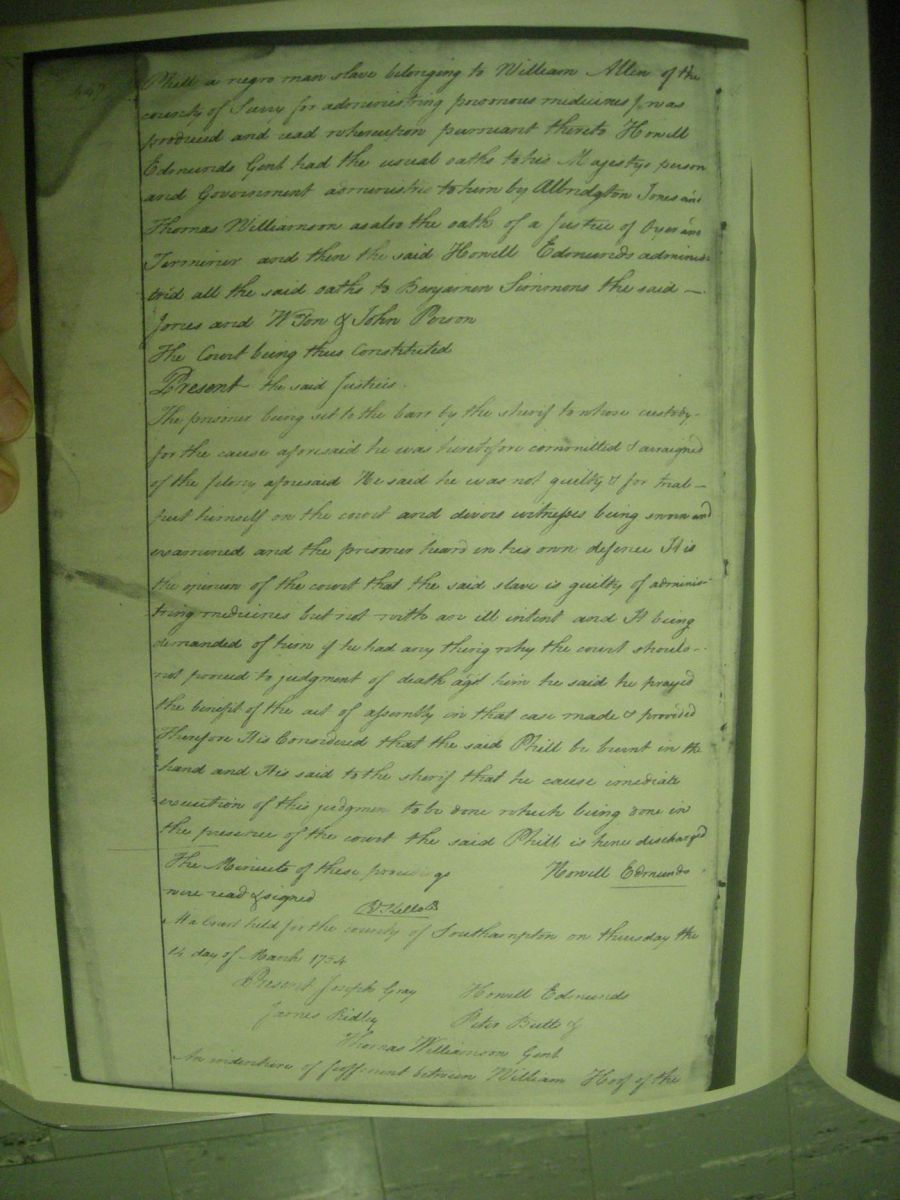 447
Phill a negro man slave belonging to William Allen of the
county of Surry for administring poisonous medicines
produced and read whereupon pursuant thereto Howell
Edmunds Gent had the usual oaths to his Majestys person
and Government administred to him by Albridgton Jones and
Thomas Williamson as also the oath of a Justice of Oyer and
Terminer and then the said Howell Edmunds adminis-
tred all the said oaths to Benjamin Simmons the said —
Jones and Wmson & John Person
The Court being thus Constituted
Present the said Justices.
The prisoner being set to the barr by the sherif to whose custody-
for the cause aforesaid he was heretofore committed & arraigned
of the felony aforesaid He said he was not guilty & for trial —
put himself on the court and divers witnesses being sworn and
examined and the prisoner heard in his own defence It is
the opinion of the court that the said slave is guilty of adminis-
tring medicines but not with an ill intent and It being
demanded of him if he had any thing why the court should-
not proceed to judgment of death agst him he said he prayed
the benefit of the act of assembly in that case made & provided
Therefore It is Considered that the said Phill be burnt in the
hand and It is said to the sherif that he cause imediate
execution of this judgmen to be done which being done in
the presence of the court the said Phill is hence discharged
The Minuets of these proceedings Howell Edmunds
were read & signed
At a Court held for the county of Southampton on thursday the
14 day of March 1754
Present Joseph Gray Howell Edmunds
James Ridley Peter Butts &
Thomas Williamson Gent
An indenture of feoffment between William of the